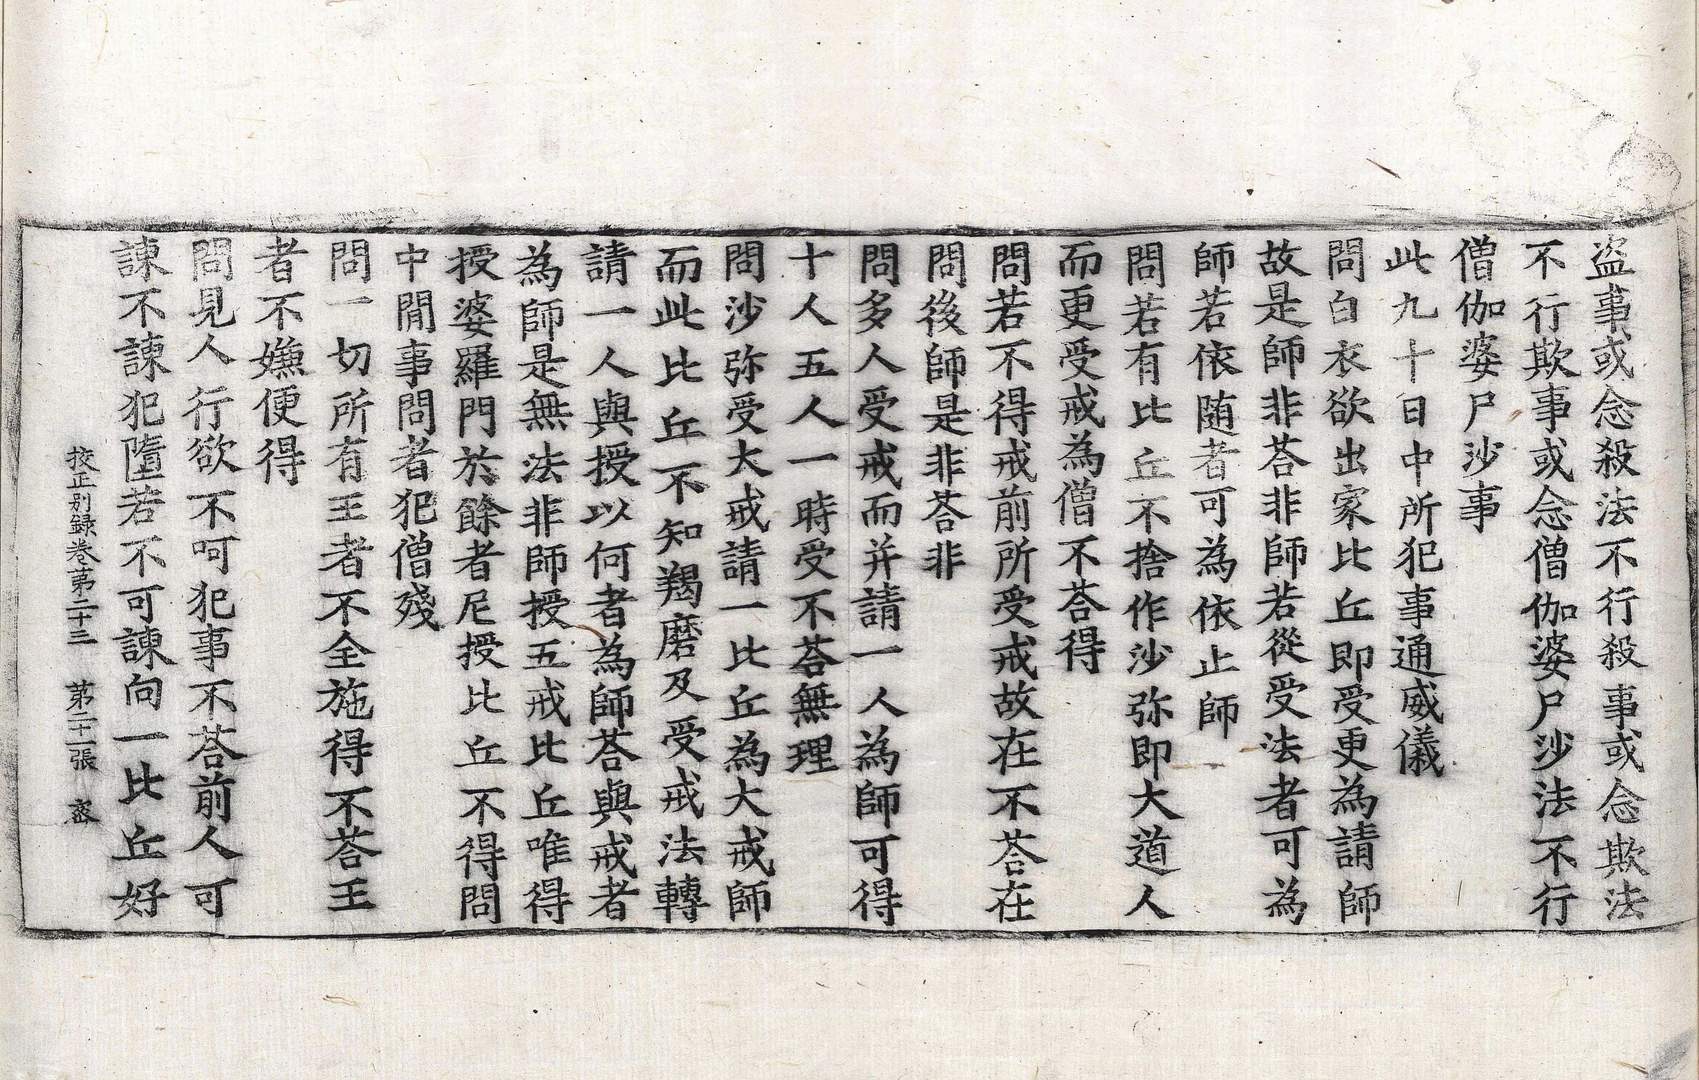 盗事或念殺法不行殺事或念欺法
不行欺事或念僧伽婆尸沙法不行
僧伽婆尸沙事
此九十日中所犯事通威儀
問白衣欲出家比丘即受更為請師
故是師非荅非師若從受法者可為
師若依随者可為依止師
問若有比丘不捨作沙弥即大道人
而更受戒為僧不荅得
問若不得戒前所受戒故在不荅在
問後師是非荅非
問多人受戒而并請一人為師可得
十人五人一時受不荅無理
問沙弥受大戒請一比丘為大戒師
而此比丘不知羯磨及受戒法轉
請一人與授以何者為師荅與戒者
為師是無法非師授五戒比丘唯得
授婆羅門於餘者尼授比丘不得問
中閒事問者犯僧殘
問一切所有王者不全施得不荅王
者不嫌便得
問見人行欲不呵犯事不荅前人可
諫不諫犯墮若不可諫向一比丘好
挍正別録卷苐二十三 苐二十一張 宻